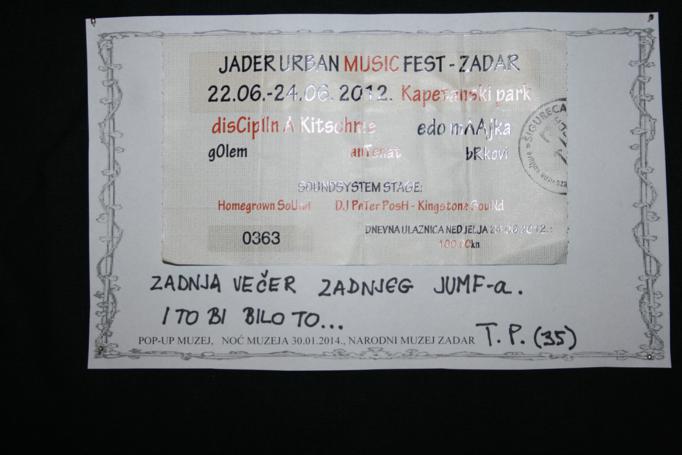 JADER URBAN MUSIC FEST - ZADAR
22.06.-24.06. 2012. Kapetanski park
disCiplIn A Kitschme edo mAAjka
gOlem anTenat bRkovi
SOUNDSYSTEM STAGE:
Homegrown SoUnd DJ PeTer PosH - Kingstone SouNd
DNEVNA ULAZNICA NEDJELJA 24.06.2012.:
0363
ZADNJA VEČER ZADNJEG JUMF-a.
I TO BI BILO TO...
POP-UP MUZEJ, NOĆ MUZEJA 30.01.2014., NARODNI MUZEJ ZADAR
T.P. (35)